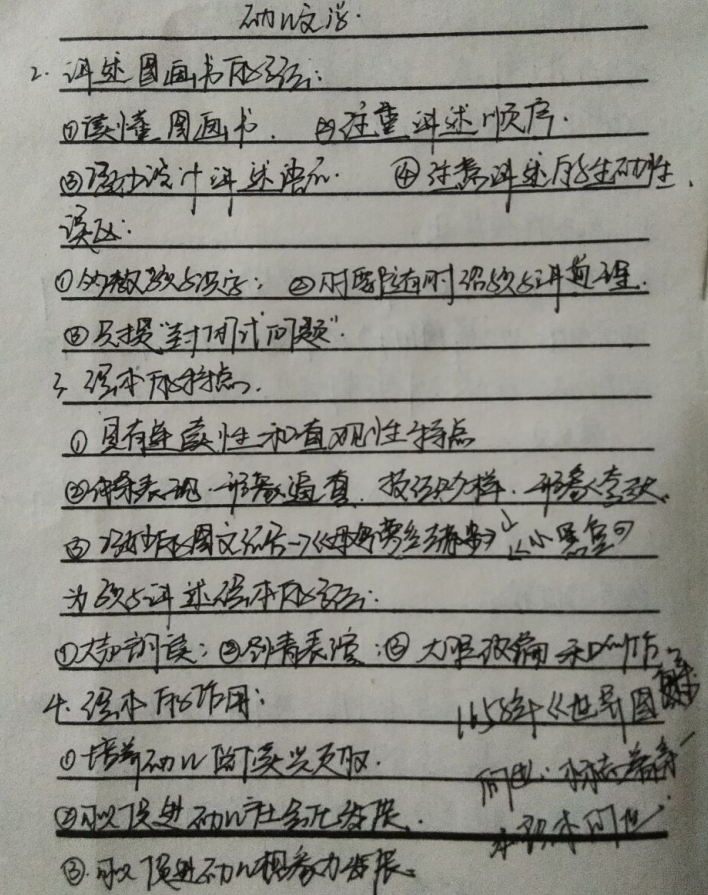 幼儿文学.
2. 讲述图画书的方法:
①读懂图画书. ②注重讲述顺序.
③巧妙设计讲述语言. ④注意讲述的生动性.
误区:
①教孩子识字; ②时时给孩子讲道理.
③只提"封闭式问题".
3. 绘本的特点.
①具有连续性和直观性特点
②形象逼真, 技法多样, 形象夸张.
③巧妙的图文结合→《母鸡萝丝去散步》↓《小黑鱼》
为孩子讲述绘本的方法:
①大声朗读; ②声情表演; ③大胆改编和创作
4. 绘本的作用:
1658年《世界图解》
①培养幼儿阅读兴趣.
问世, 标志着第一
②可以促进幼儿社会化发展.
本绘本问世.
③可以促进幼儿想象力发展.